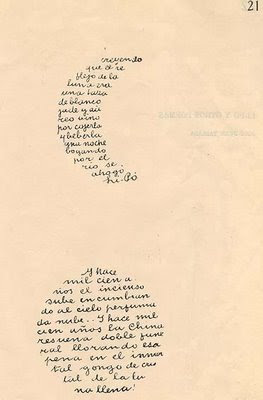 21
creyendo
que el re
flejo de la
luna era
una taza
de blanco
jade y áu
reo vino
por cogerla
y beberla
una noche
bogando
por el
río se
ahogó
Li-Pó
Y hace
mil cien a
ños el incienso
sube encumbran
do al cielo perfuma
da nube.. Y hace mil
cien años la China
resuena doble fune
ral llorando esa
pena en el inmor
tal gongo de cris
tal de la lu
na llena!